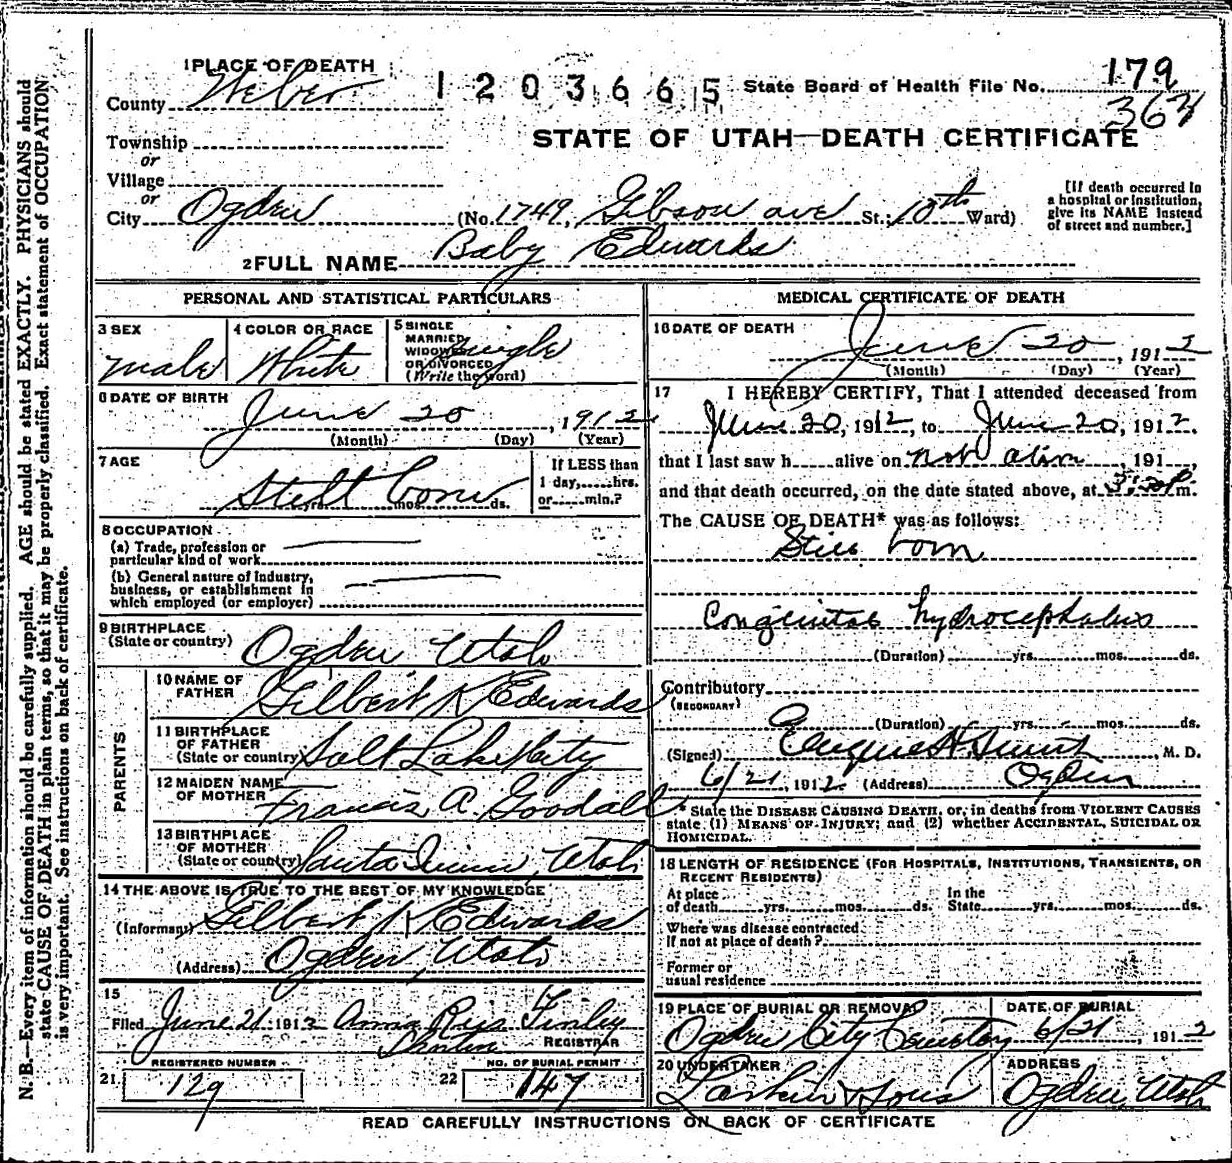 1 PLACE OF DEATH
1203665
State Board of Health File No. 179
363
County Weber
STATE OF UTAH—DEATH CERTIFICATE
Township
or
Village
or
City Ogden (No. 1749, Gibson ave St.; 10th Ward)
[If death occurred in
a hospital or institution,
give its NAME instead
of street and number.]
2 FULL NAME Baby Edwards
PERSONAL AND STATISTICAL PARTICULARS
3 SEX
male
4 COLOR OR RACE
White
5 SINGLE
MARRIED,
WIDOWED
OR DIVORCED
(Write the word)
Single
6 DATE OF BIRTH
June 20, 1912
(Month) (Day) (Year)
7 AGE
Still born
yrs. mos. ds.
If LESS than
1 day, hrs.
or min.?
8 OCCUPATION
(a) Trade, profession or
particular kind of work
(b) General nature of industry,
business, or establishment in
which employed (or employer)
9 BIRTHPLACE
(State or country)
Ogden Utah
PARENTS
10 NAME OF
FATHER
Gilbert K Edwards
11 BIRTHPLACE
OF FATHER
(State or country)
Salt Lake City
12 MAIDEN NAME
OF MOTHER
Francis A. Goodall
13 BIRTHPLACE
OF MOTHER
(State or country)
Utah
14 THE ABOVE IS TRUE TO THE BEST OF MY KNOWLEDGE
(Informant) Gilbert K Edwards
(Address) Ogden, Utah
15
Filed June 21 1912 Anna Finley
REGISTRAR
REGISTERED NUMBER
21 129
NO. OF BURIAL PERMIT
22 147
MEDICAL CERTIFICATE OF DEATH
16 DATE OF DEATH
June 20, 1912
(Month) (Day) (Year)
17 I HEREBY CERTIFY, That I attended deceased from
June 20, 1912, to June 20, 1912.
that I last saw h alive on not alive 191
and that death occurred, on the date stated above, at m.
The CAUSE OF DEATH* was as follows:
Still born
Congenital hydrocephalus
(Duration) yrs. mos. ds.
Contributory
(SECONDARY)
(Duration) yrs. mos. ds.
(Signed) M. D.
6/21, 1912. (Address) Ogden
* State the DISEASE CAUSING DEATH, or, in deaths from VIOLENT CAUSES
state (1) MEANS OF INJURY; and (2) whether ACCIDENTAL, SUICIDAL OR
HOMICIDAL.
18 LENGTH OF RESIDENCE (FOR HOSPITALS, INSTITUTIONS, TRANSIENTS, OR
RECENT RESIDENTS)
At place
of death yrs. mos. ds.
In the
State yrs. mos. ds.
Where was disease contracted
if not at place of death?
Former or
usual residence
19 PLACE OF BURIAL OR REMOVAL
Ogden City Cemetery
DATE OF BURIAL
6/21, 1912
20 UNDERTAKER
Larkin & Sons
ADDRESS
Ogden, Utah
READ CAREFULLY INSTRUCTIONS ON BACK OF CERTIFICATE
N. B.—Every item of information should be carefully supplied. AGE should be stated EXACTLY. PHYSICIANS should
state CAUSE OF DEATH in plain terms, so that it may be properly classified. Exact statement of OCCUPATION
is very important. See instructions on back of certificate.